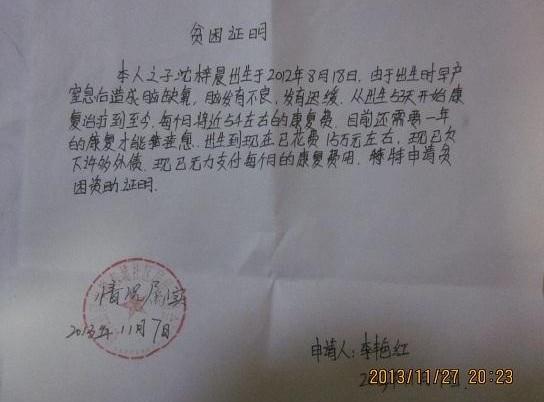 贫困证明
本人之子沈梓晨出生于2012年8月18日,由于出生时早产
窒息后造成脑缺氧,脑发育不良,发育迟缓.从出生53天开始康
复治疗到至今,每个月将近54左右的康复费.目前还需要一年
的康复才能痊愈.出生到现在已花费15万元左右,现已欠
下许多外债.现已无力支付每个月的康复费用.特特申请贫
困资助证明.
情况属实
2013年11月7日
申请人:李艳红
2013/11/27 20:23